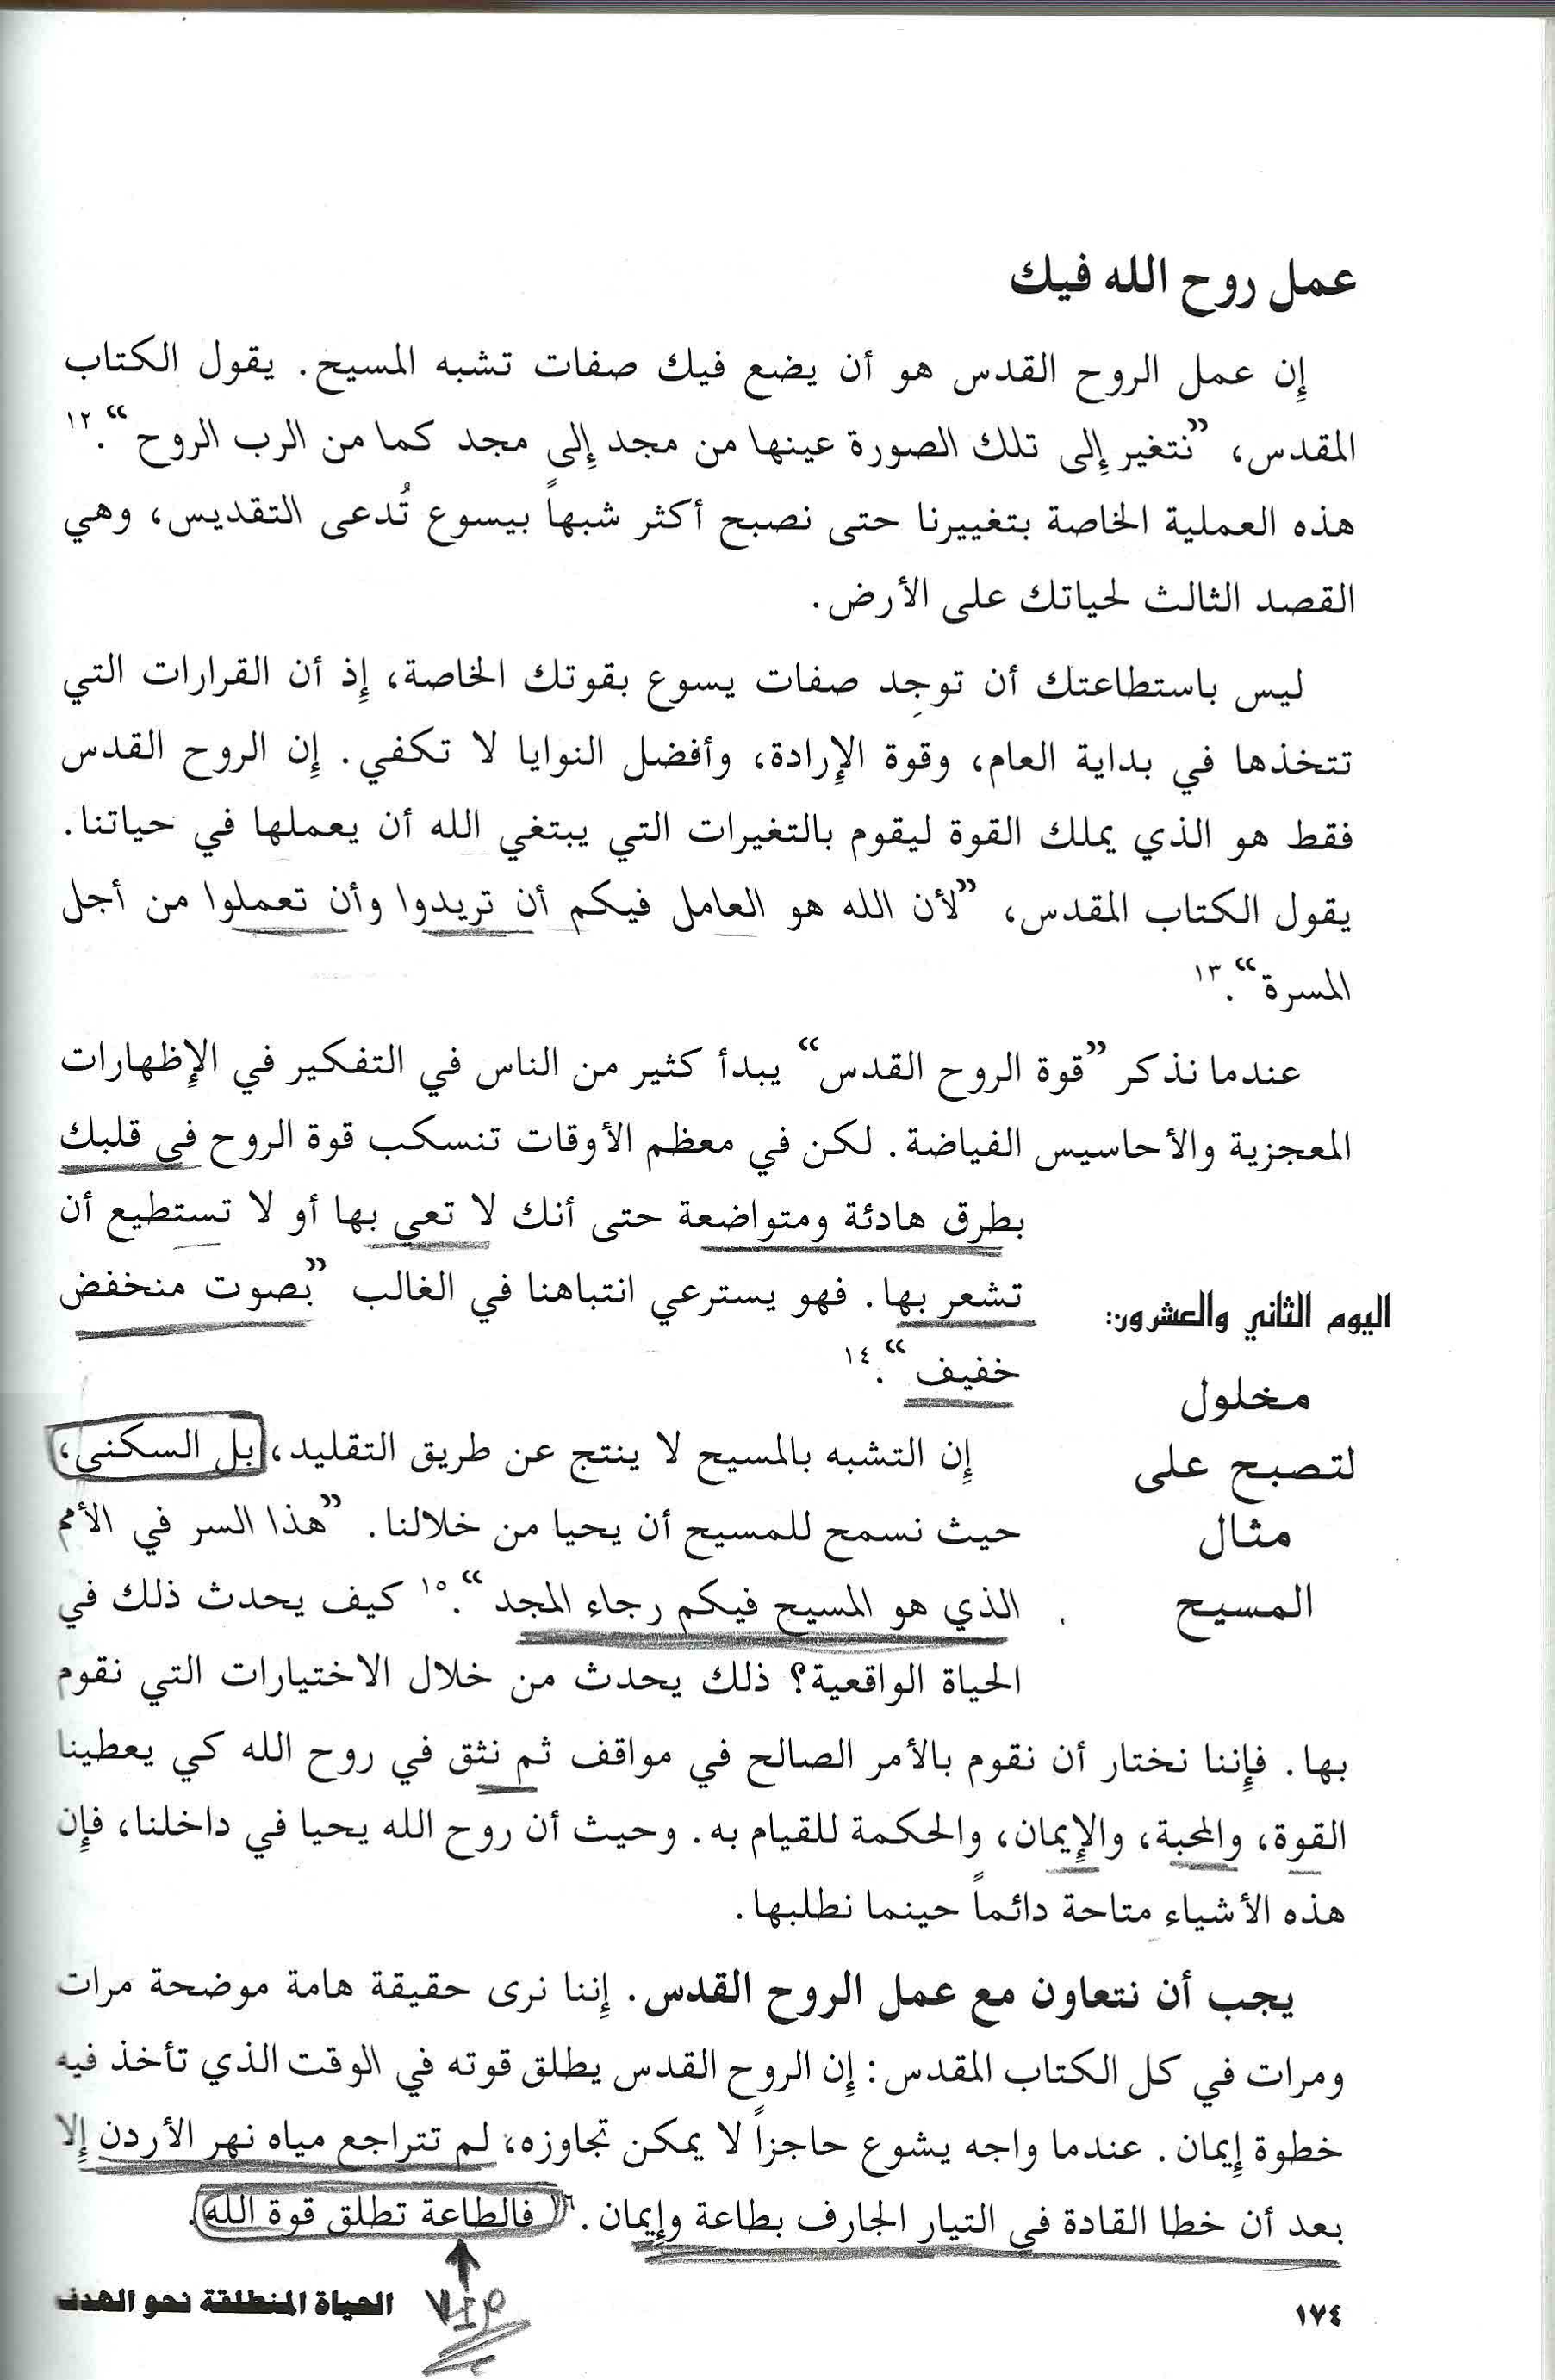 عمل روح الله فيك
إن عمل الروح القدس هو أن يضع فيك صفات تشبه المسيح. يقول الكتاب
المقدس، ”نتغير إلى تلك الصورة عينها من مجد إلى مجد كما من الرب الروح“.١٢
هذه العملية الخاصة بتغييرنا حتى نصبح أكثر شبهاً بيسوع تُدعى التقديس، وهي
القصد الثالث لحياتك على الأرض.
ليس باستطاعتك أن توجِد صفات يسوع بقوتك الخاصة، إذ أن القرارات التي
تتخذها في بداية العام، وقوة الإرادة، وأفضل النوايا لا تكفي. إن الروح القدس
فقط هو الذي يملك القوة ليقوم بالتغيرات التي يبتغي الله أن يعملها في حياتنا.
يقول الكتاب المقدس، ”لأن الله هو العامل فيكم أن تريدوا وأن تعملوا من أجل
المسرة“.١٣
عندما نذكر ”قوة الروح القدس“ يبدأ كثير من الناس في التفكير في الإظهارات
المعجزية والأحاسيس الفياضة. لكن في معظم الأوقات تنسكب قوة الروح في قلبك
بطرق هادئة ومتواضعة حتى أنك لا تعي بها أو لا تستطيع أن
تشعر بها. فهو يسترعي انتباهنا في الغالب ”بصوت منخفض
خفيف“.١٤
إن التشبه بالمسيح لا ينتج عن طريق التقليد، بل السكنى،
حيث نسمح للمسيح أن يحيا من خلالنا. ”هذا السر في الأمم
الذي هو المسيح فيكم رجاء المجد“.١٥ كيف يحدث ذلك في
الحياة الواقعية؟ ذلك يحدث من خلال الاختيارات التي نقوم
بها. فإننا نختار أن نقوم بالأمر الصالح في مواقف ثم نثق في روح الله كي يعطينا
القوة، والمحبة، والإيمان، والحكمة للقيام به. وحيث أن روح الله يحيا في داخلنا، فإن
هذه الأشياء متاحة دائماً حينما نطلبها.
يجب أن نتعاون مع عمل الروح القدس. إننا نرى حقيقة هامة موضحة مرات
ومرات في كل الكتاب المقدس: إن الروح القدس يطلق قوته في الوقت الذي تأخذ فيه
خطوة إيمان. عندما واجه يشوع حاجزاً لا يمكن تجاوزه، لم تتراجع مياه نهر الأردن إلا
بعد أن خطا القادة في التيار الجارف بطاعة وإيمان.١٦ فالطاعة تطلق قوة الله.
اليوم الثاني والعشرون:
مخلول
لتصبح على
مثال
المسيح
VIP
١٧٤
الحياة المنطلقة نحو الهدف